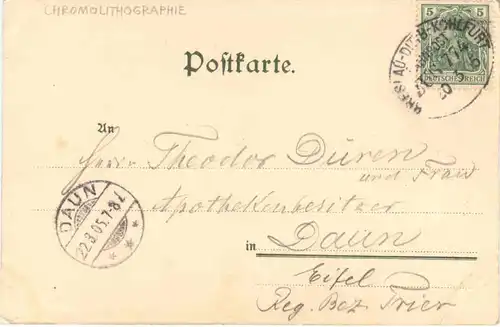 CHROMOLITHOGRAPHIE
5 5
DEUTSCHES REICH
BRESLAU-
KOHLFURT
Postkarte.
An
Herrn Theodor Düren
und Frau
Apothekenbesitzer
in Daun
Eifel
Reg. Bez. Trier
DAUN
22.8.05.7-8V.